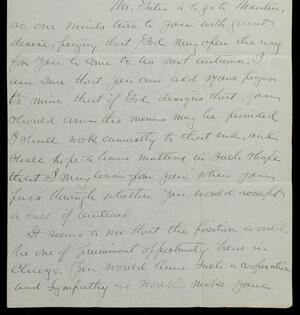 Mr. Gates is to go to Manila,
so our minds turn to you with great
desire, praying that God may open the way
for you to come to us next autumn. I
am sure that you can add your prayers
to mine that if God designs that you
should come the means may be provided
I shall work earnestly to that end, and
shall hope to have matters in such shape
that I may learn from you when you
pass through whether you would accept
a call if extended.
It seems to me that the position would
be one of preeminent opportunity here in
Chicago. You would have such a cooperation
and sympathy as would make your